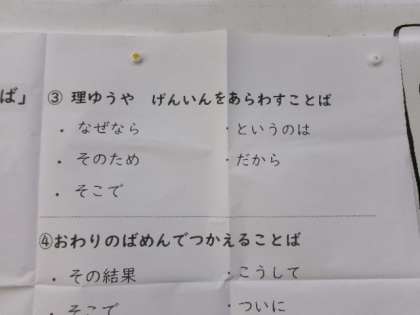 ば」
③ 理ゆうや　げんいんをあらわすことば
・なぜなら　・というのは
・そのため　・だから
・そこで
④おわりのばめんでつかえることば
・その結果　・こうして
・そこで　・ついに